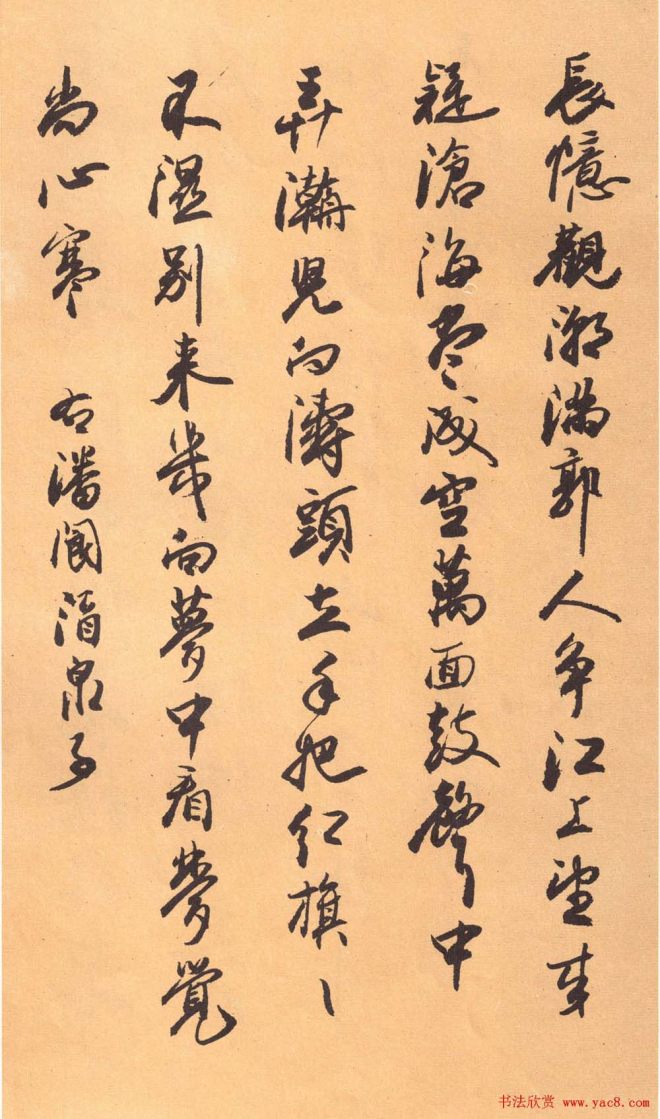 長憶觀潮滿郭人爭江上望来
疑滄海盡成空萬面鼓聲中
弄潮兒向濤頭立手把紅旗〻
不濕别来幾向夢中看夢覺
尚心寒 右潘閬酒泉子
书法欣赏 www.yac8.com